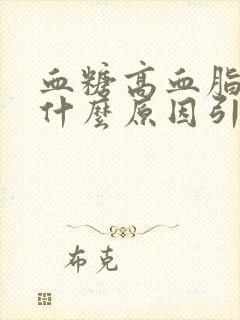 血糖高血脂
什麼原因引
布克